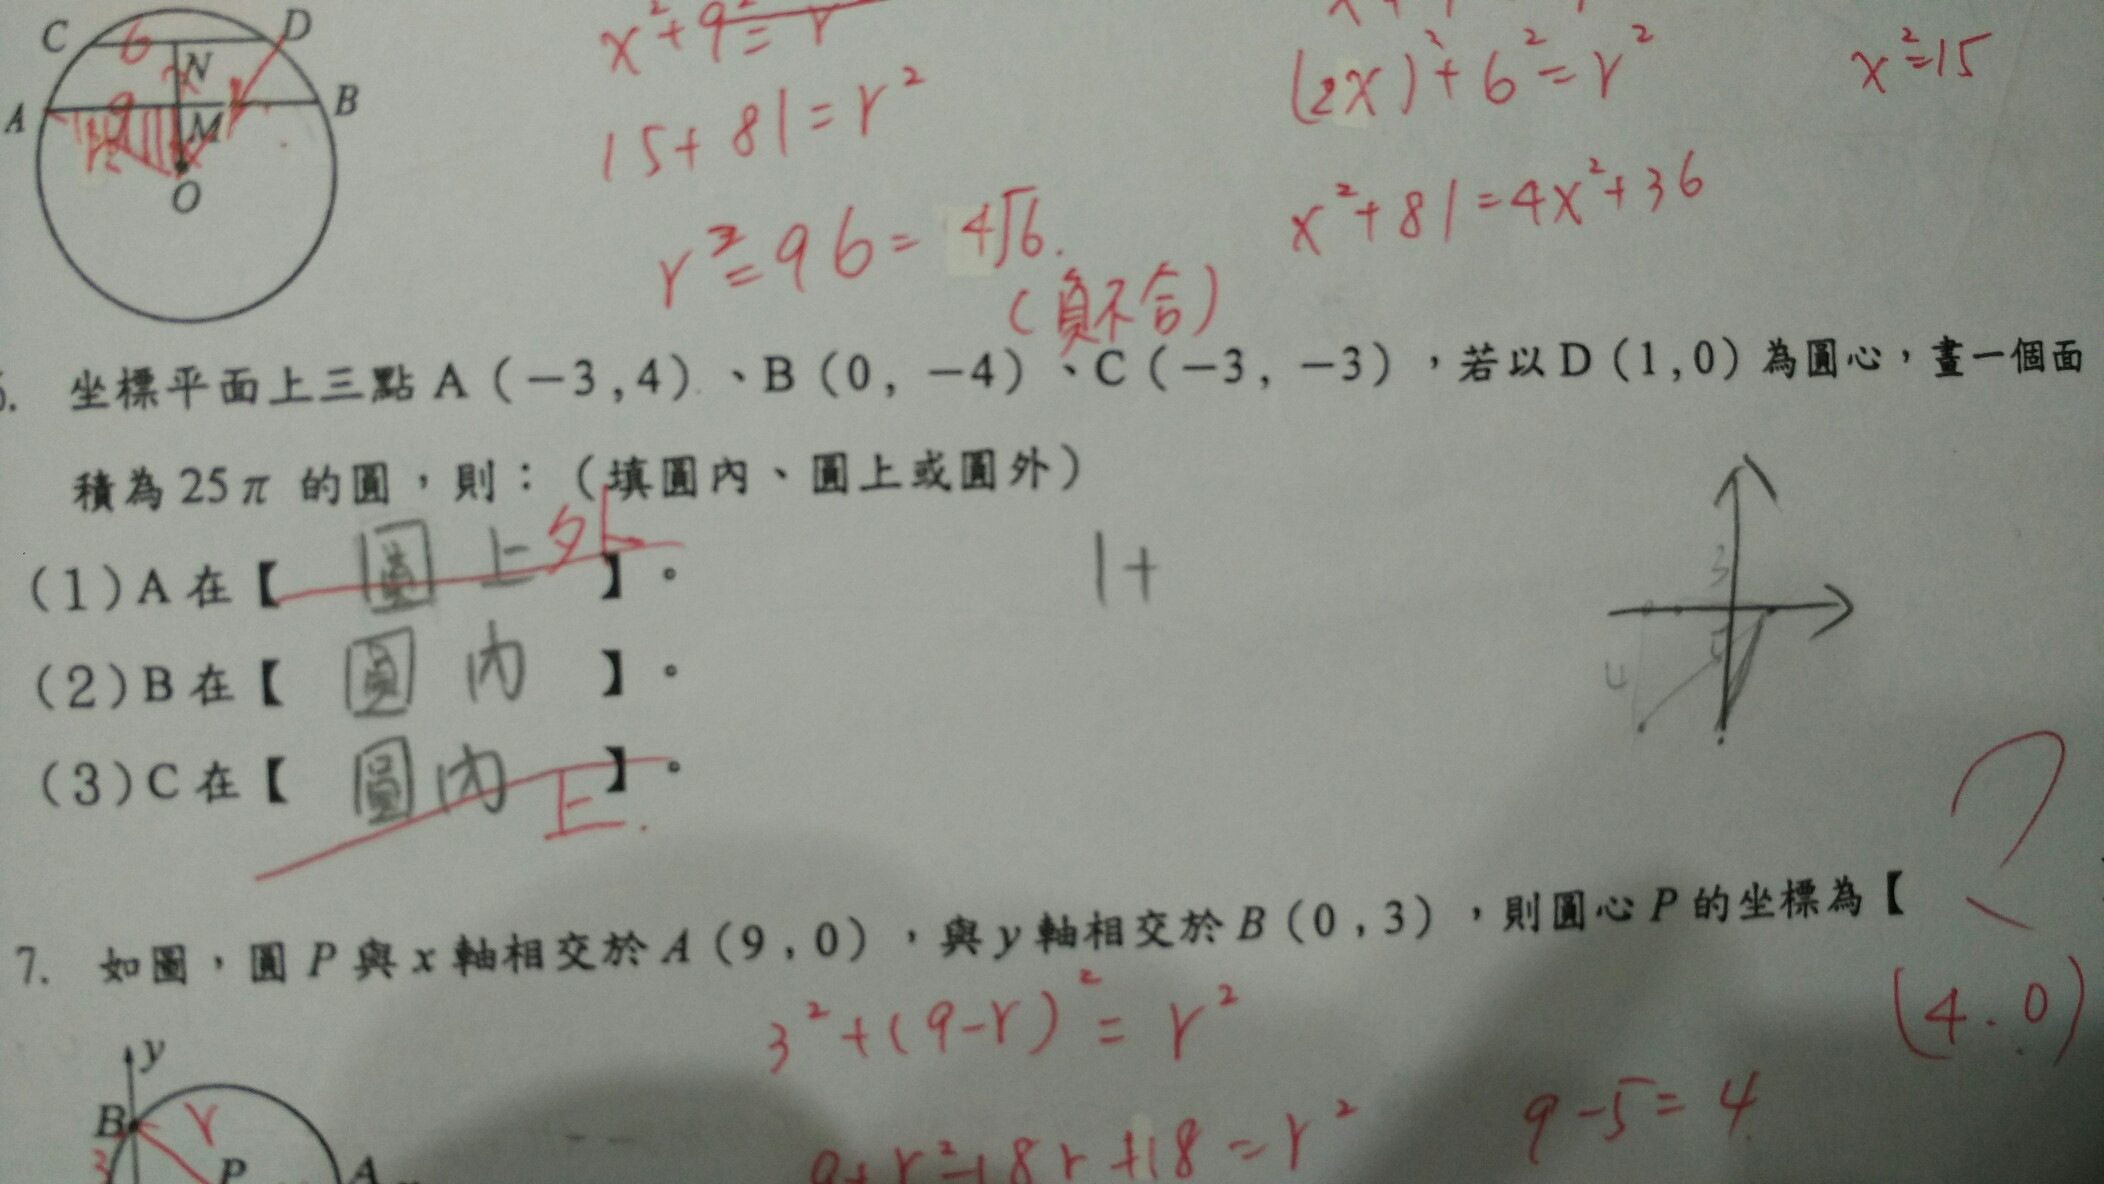 C 6 D
N
A 9 M B
O
x²+9²=r
15+81=r²
r²=96=4√6.
(負不合)
(2x)²+6²=r²
x²=15
x²+81=4x²+36
坐標平面上三點A(-3,4)、B(0,-4)、C(-3,-3),若以D(1,0)為圓心,畫一個面
積為25π的圓,則:(填圓內、圓上或圓外)
(1)A在【 圓上 外 】。
1+
3
(2)B在【 圓內 】。
5
4
(3)C在【 圓內 上 】。
?
7. 如圖,圓P與x軸相交於A(9,0),與y軸相交於B(0,3),則圓心P的坐標為【
(4.0)
3²+(9-r)²=r²
9-5=4
y
B r
3 P A